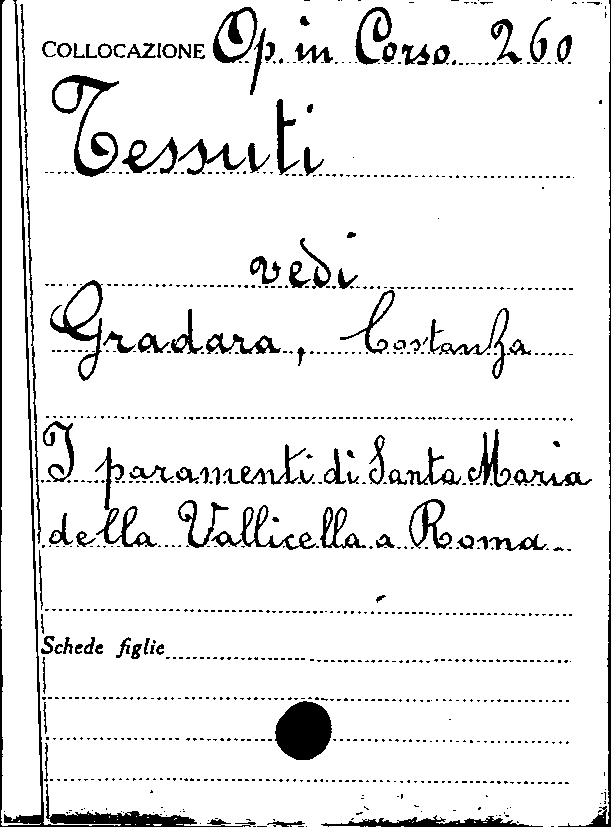 COLLOCAZIONE Op. in Corso. 260
Tessuti
vedi
Gradara, Costanza
I paramenti di Santa Maria
della Vallicella a Roma.
Schede figlie